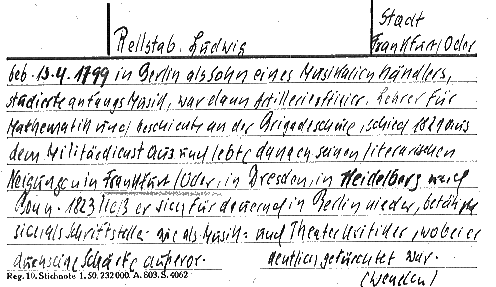 Rellstab, Ludwig
Stadt
Frankfurt/Oder
geb. 13.4.1799 in Berlin als Sohn eines Musikalienhändlers,
studierte anfangs Musik, war dann Artillerieoffizier, Lehrer für
Mathematik und Geschichte an der Brigadeschule, schied 1821 aus
dem Militärdienst aus und lebte danach seinen literarischen
Neigungen in Frankfurt/Oder, in Dresden, in Heidelberg und
Bonn. 1823 ließ er sich für dauernd in Berlin nieder, betätigte
sich als Schriftsteller wie als Musik- und Theaterkritiker, wobei er
durch seine Schärfe außeror-
dentlich gefürchtet war.
(wenden)
Reg. 10. Stichnote 1. 50. 232000. A. 803. S. 4062